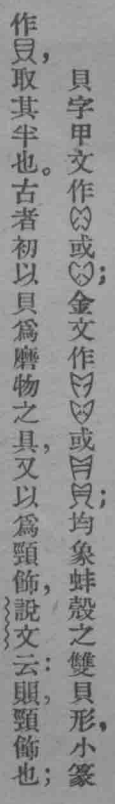 貝字甲文作或;金文作或;均象蚌殼之雙貝形,小篆
作,取其半也。古者初以貝爲磨物之具,又以爲頸飾,說文云:賏,頸飾也;